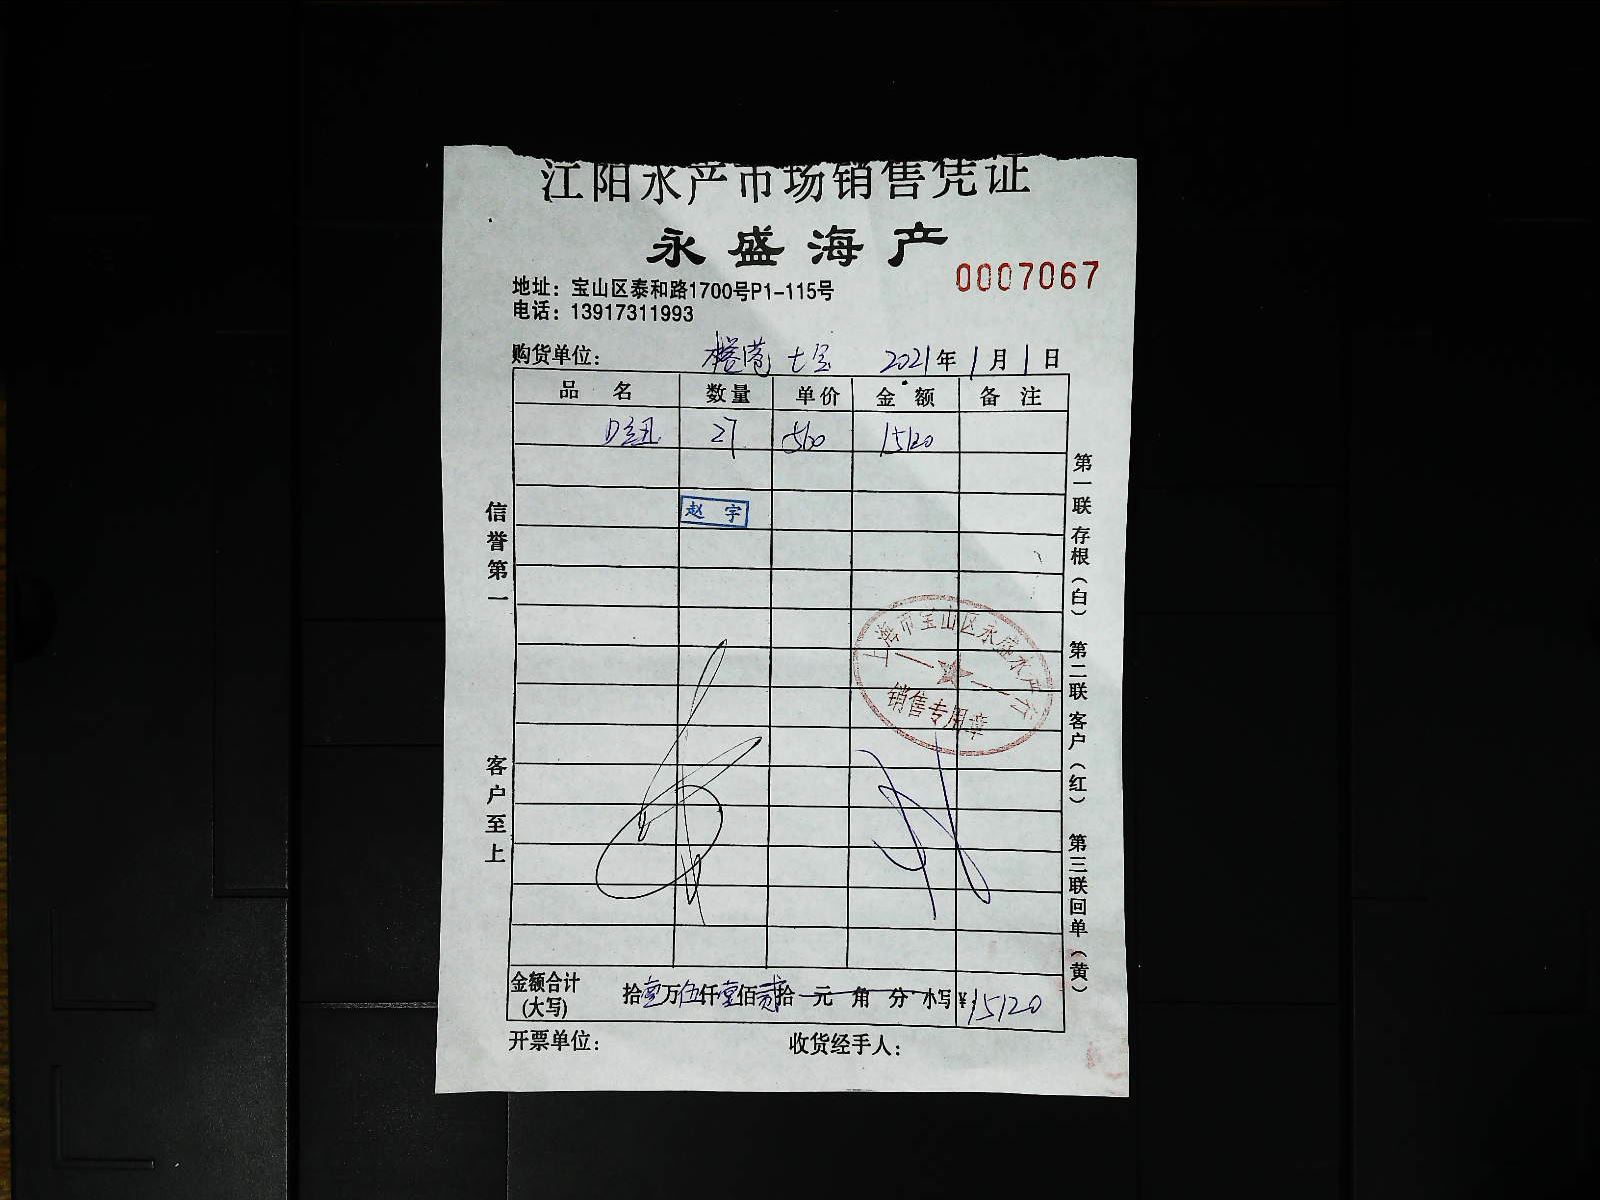 江阳水产市场销售凭证
永盛海产
0007067
地址：宝山区泰和路1700号P1-115号
电话：13917311993
购货单位： 七宝 2021年1月1日
品名 数量 单价 金额 备注
27 560 15120
赵宇
信誉第一
客户至上
第一联存根（白） 第二联客户（红） 第三联回单（黄）
上海市宝山区永盛水产行
销售专用章
金额合计(大写) 拾壹万伍仟壹佰贰拾元角分 小写¥：15120
开票单位： 收货经手人：